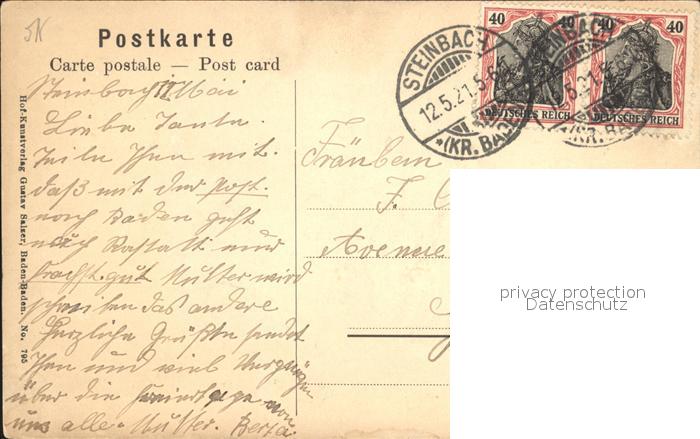 5K
Postkarte
Carte postale — Post card
40 40 40 40
STEINBACH
12.5.21.5-6
*(KR. BADEN
DEUTSCHES REICH
DEUTSCHES REICH
Steinbach Mai
Liebe Tante.
Teile Ihnen mit.
daß mit der Post.
nach Baden geht
nach Rastatt und
gut Mutter wird
schreiben das andere
Herzliche Grüße sendet
Ihnen und viel Vergnügen
über die Feiertage von
uns alle. Mutter. Berta.
Fräulein
F.
Avenue
Hof-Kunstverlag Gustav Salzer, Baden-Baden. No. 795
privacy protection
Datenschutz